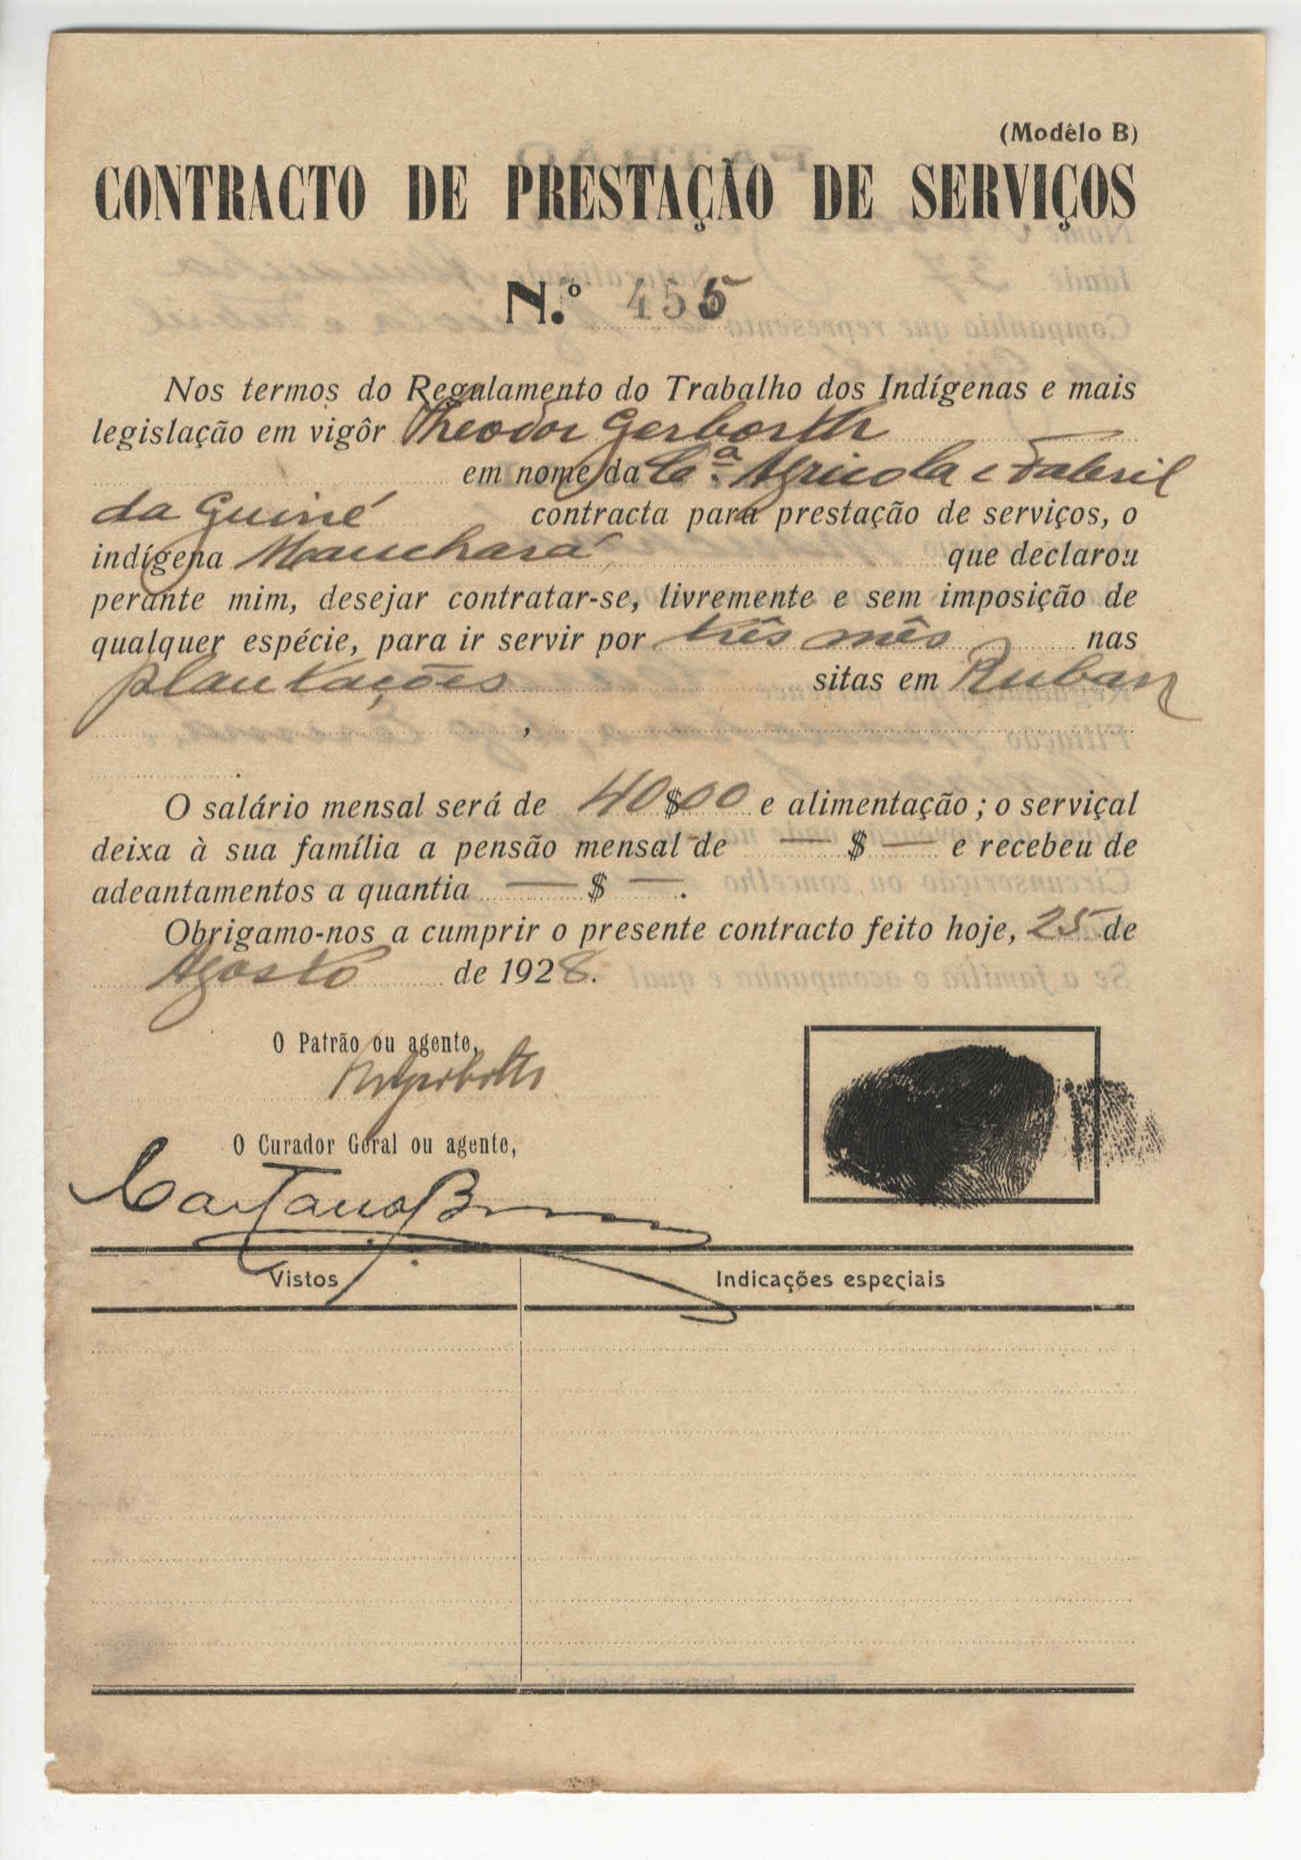 (Modêlo B)
CONTRACTO DE PRESTAÇÃO DE SERVIÇOS
N.º 455
Nos termos do Regulamento do Trabalho dos Indígenas e mais
legislação em vigôr Theodor Gerborth
em nome da Cª. Agricola e Fabril
da Guiné contracta para prestação de serviços, o
indígena Manchará que declarou
perante mim, desejar contratar-se, livremente e sem imposição de
qualquer espécie, para ir servir por três mês nas
plantações sitas em Ruban
O salário mensal será de 40$00 e alimentação; o serviçal
deixa à sua família a pensão mensal de — $ — e recebeu de
adeantamentos a quantia — $ —.
Obrigamo-nos a cumprir o presente contracto feito hoje, 25 de
Agosto de 1928.
O Patrão ou agente,
O Curador Geral ou agente,
Caetano
Vistos
Indicações especiais